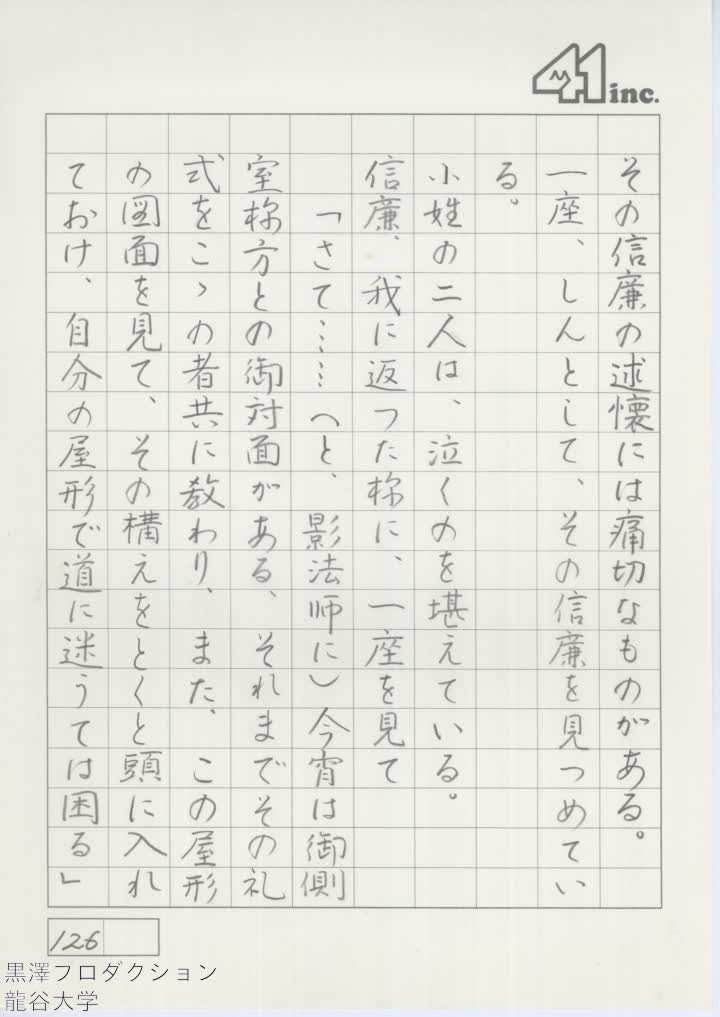 41 inc.
その信廉の述懐には痛切なものがある。
一座、しんとして、その信廉を見つめてい
る。
小姓の二人は、泣くのを堪えている。
信廉、我に返った様に、一座を見て
「さて……（と、影法師に）今宵は御側
室様方との御対面がある、それまでその礼
式をこゝの者共に教わり、また、この屋形
の図面を見て、その構えをとくと頭に入れ
ておけ、自分の屋形で道に迷うては困る」
126
黒澤プロダクション
龍谷大学